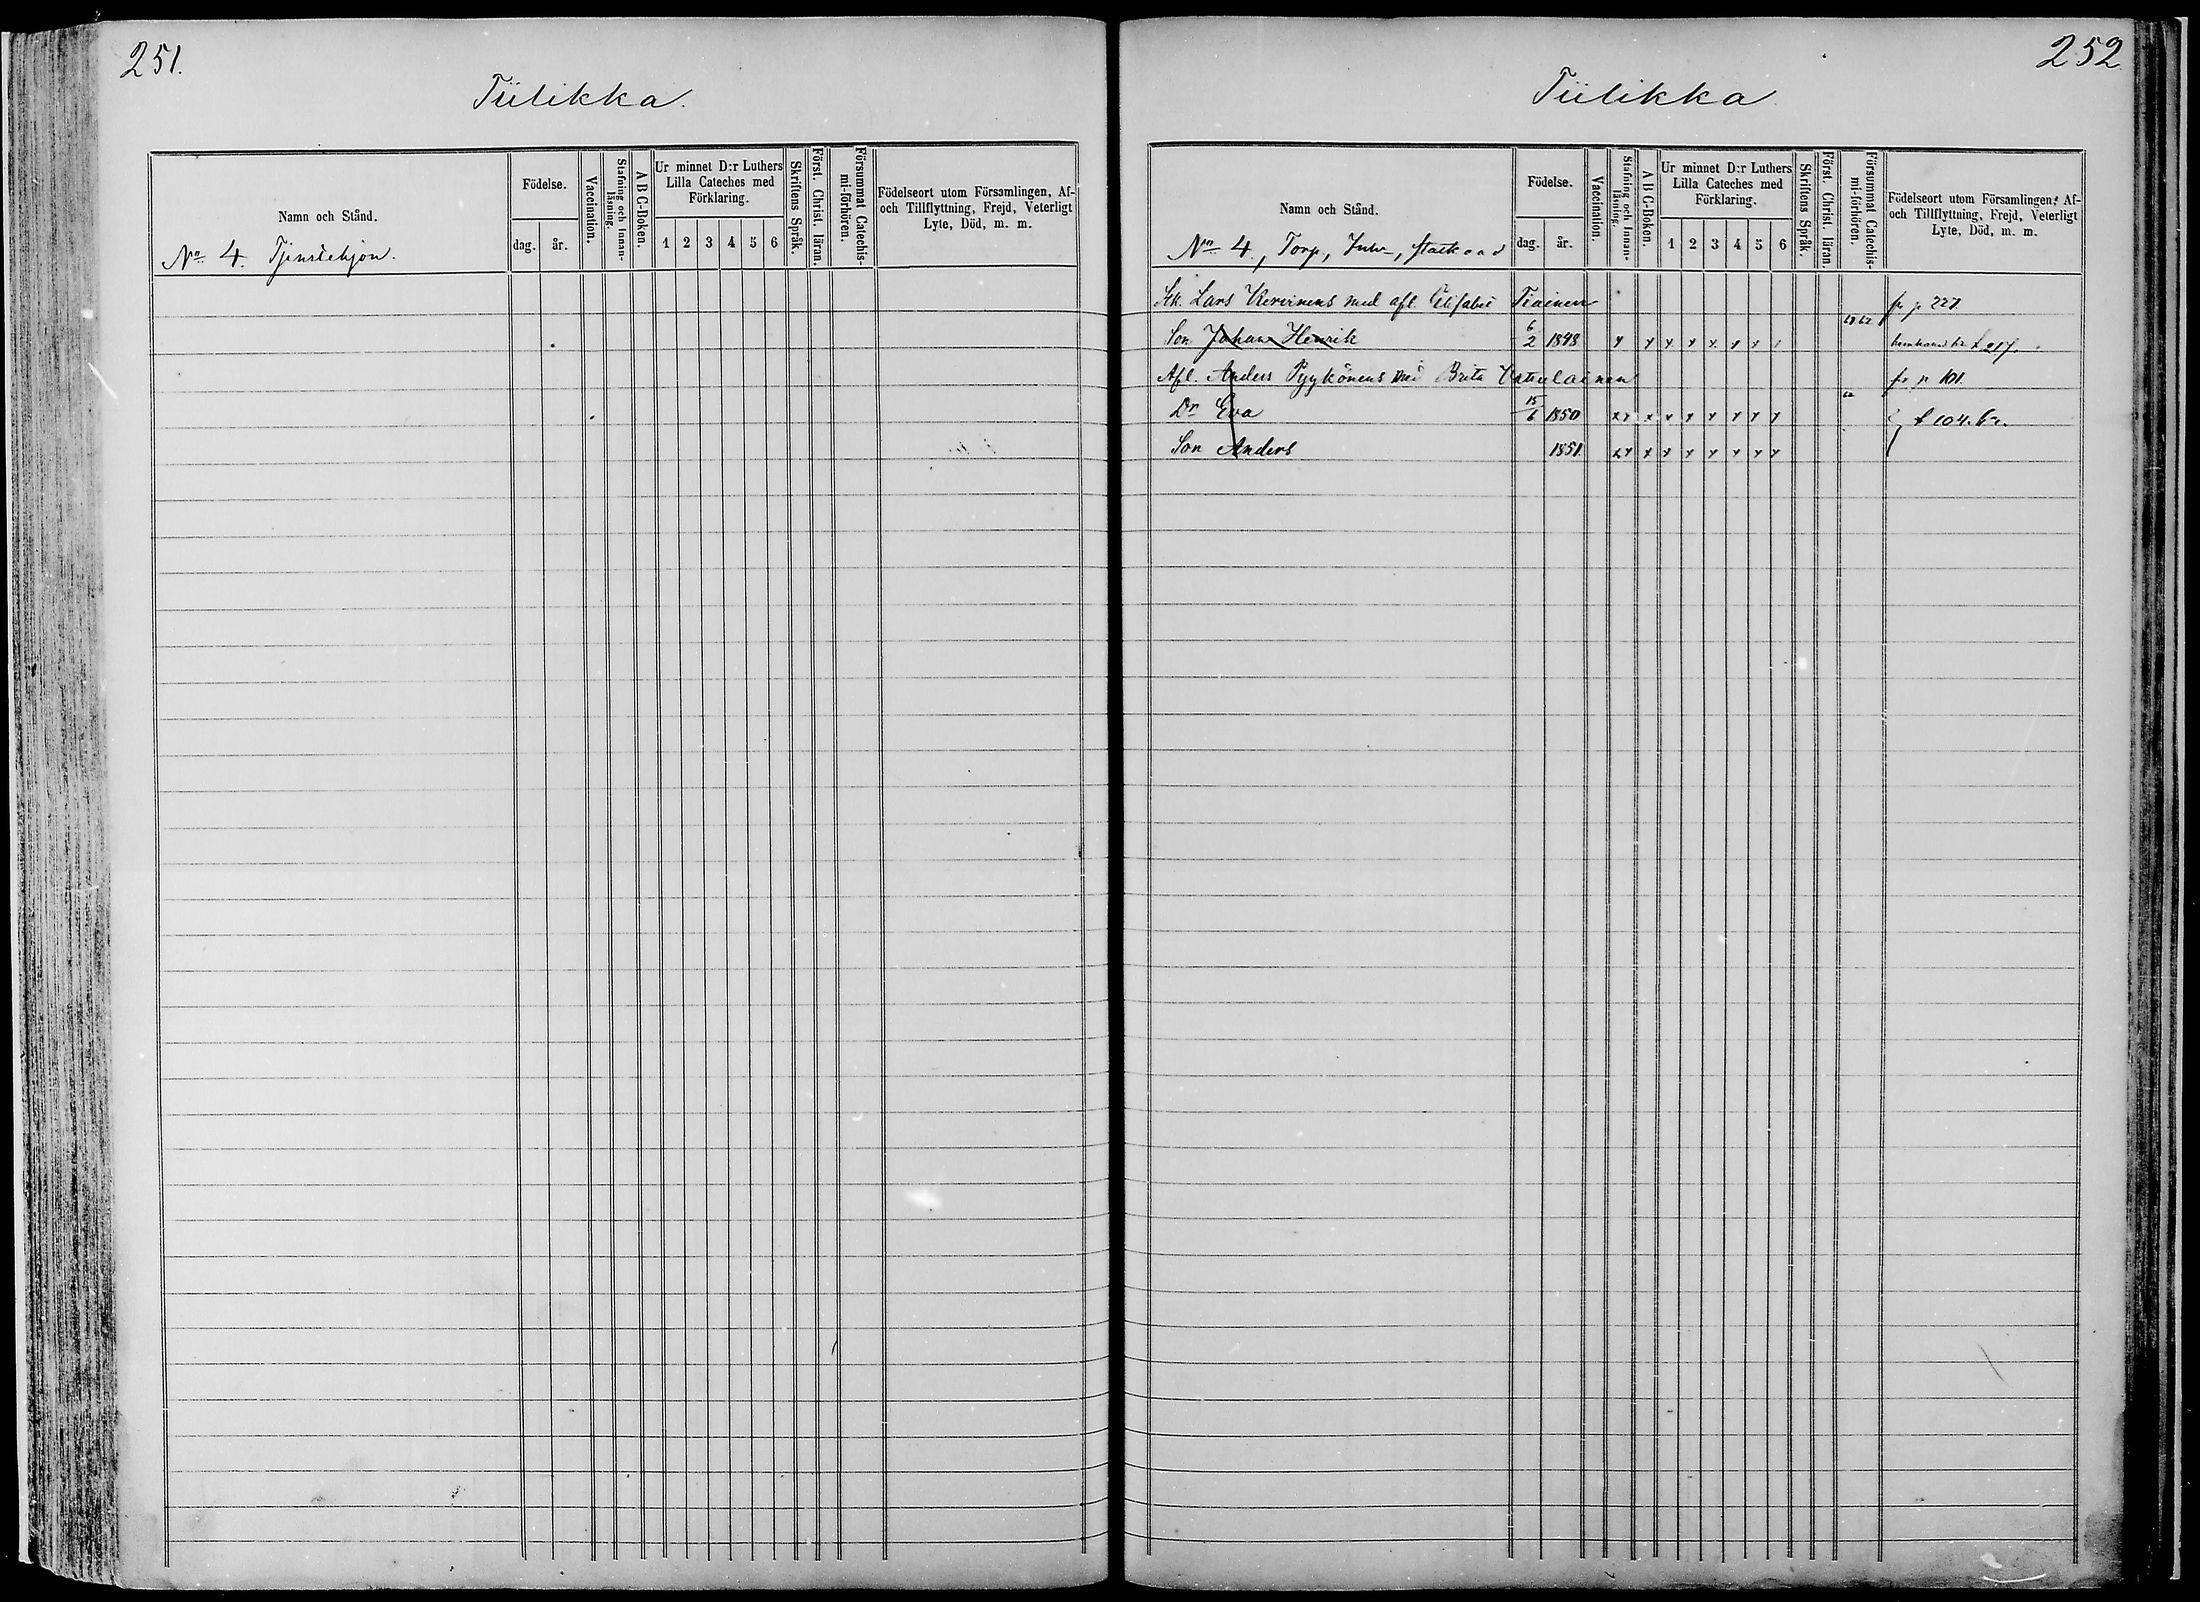 251.
Tiilikka.
Namn och Stånd.
Födelse.
dag.
år.
Vaccination.
Stafning och Innan-
läsning.
A B C-Boken.
Ur minnet D:r Luthers
Lilla Cateches med
Förklaring.
1 2 3 4 5 6
Skriftens Språk.
Först. Christ. läran.
Försummat Catechis-
mi-förhören.
Födelseort utom Församlingen, Af-
och Tillflyttning, Frejd, Veterligt
Lyte, Död, m. m.
No 4. Tjenstehjon.
252
Tiilikka
Namn och Stånd.
Födelse.
dag.
år.
Vaccination.
Stafning och Innan-
läsning.
A B C-Boken.
Ur minnet D:r Luthers
Lilla Cateches med
Förklaring.
1 2 3 4 5 6
Skriftens Språk.
Först. Christ. läran.
Försummat Catechis-
mi-förhören.
Födelseort utom Församlingen, Af-
och Tillflyttning, Frejd, Veterligt
Lyte, Död, m. m.
No 4., Torp.,
Lars Kervinens med afl. Tiainen fr p 227
Son Johan Henrik 6/2 1848 x x x x x x x 217.
Afl. Anders Pyykönens med Brita fr p 101
Dr Eva 15/6 1850 x x x x x x x x x 104.
Son Anders 1851 x x x x x x x x x